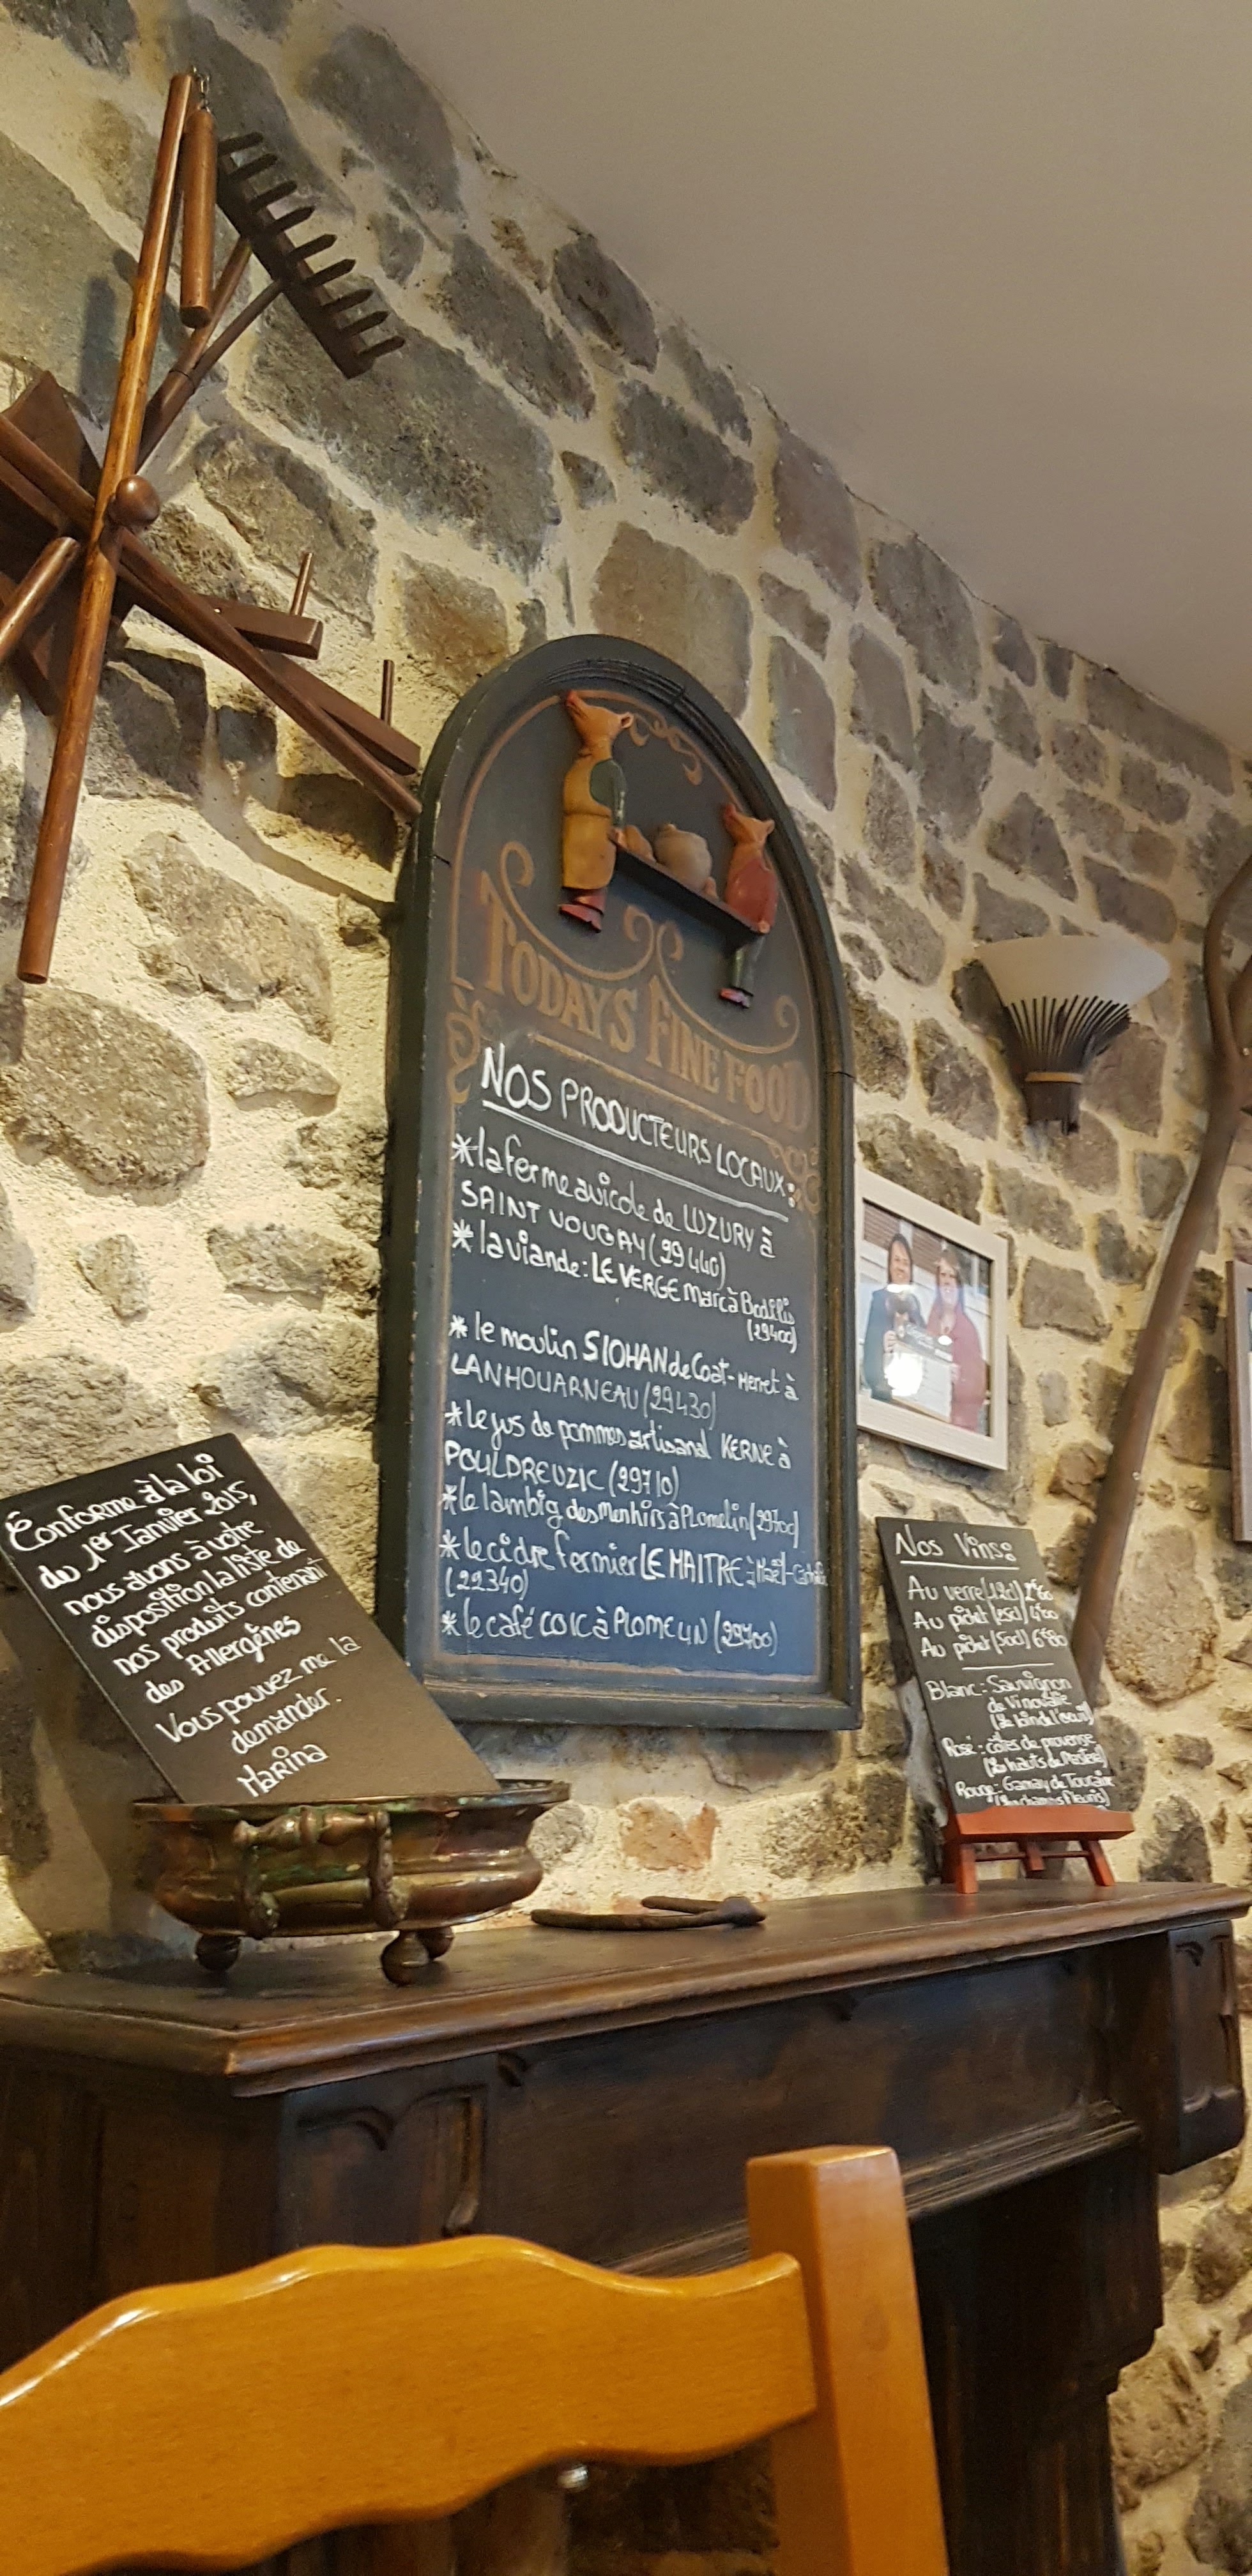 TODAYS FINE FOOD
NOS PRODUCTEURS LOCAUX:
*la ferme avicole de LUZURY à
SAINT VOUGAY (29440)
*la viande: LE VERGE Marc à Bodilis
(29400)
*le moulin SIOHAN de Coat-Merret à
LANHOUARNEAU (29430)
*le jus de pommes artisanal KERNE à
POULDREUZIC (29710)
*le lambig des Menhirs à PLomelin (29700)
*le cidre fermier LE MAITRE à
(22340)
*le café COIC à PLOMELIN (29700)
Conforme à la loi
du 1er Janvier 2015,
nous avons à votre
disposition la liste de
nos produits contenant
des Allergènes
Vous pouvez me la
demander.
Marina
Nos Vins:
Au verre (12cl) 2€60
Au pichet (25cl) 4€00
Au pichet (50cl) 6€80
Blanc: Sauvignon
de Vinovalie
(de loin de l'oeuil)
Rosé: côtes de provence
(les hauts de
Rouge: Gamay de Touraine
(les champs fleuris)